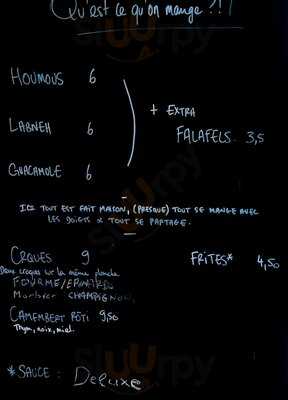 Qu'est ce qu'on mange ?!!
HOUMOUS 6
LABNEH 6
GUACAMOLE 6
+ EXTRA
FALAFELS 3,5
ICI TOUT EST FAIT MAISON, (PRESQUE) TOUT SE MANGE AVEC
LES DOIGTS & TOUT SE PARTAGE.
CROQUES 9
Deux croques sur la même planche
FOURME/EPINARDS
Morbier CHAMPIGNON
CAMEMBERT RÔTI 9,50
Thym, noix, miel
FRITES* 4,50
*SAUCE : Deluxe